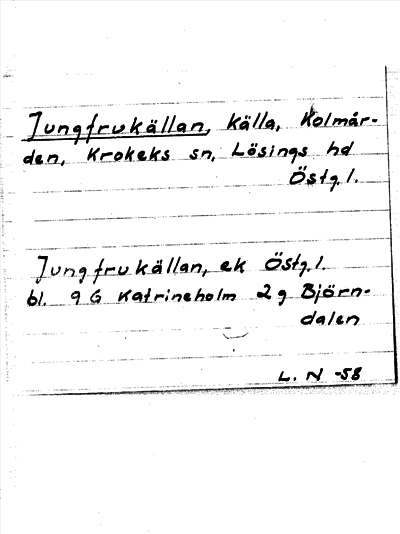 Jungfrukällan, källa, Kolmår-
den, Krokeks sn, Lösings hd
Östg. l.
Jungfrukällan, ek Östg. l.
bl. 9 G Katrineholm 2 g Björn-
dalen
L. N -58